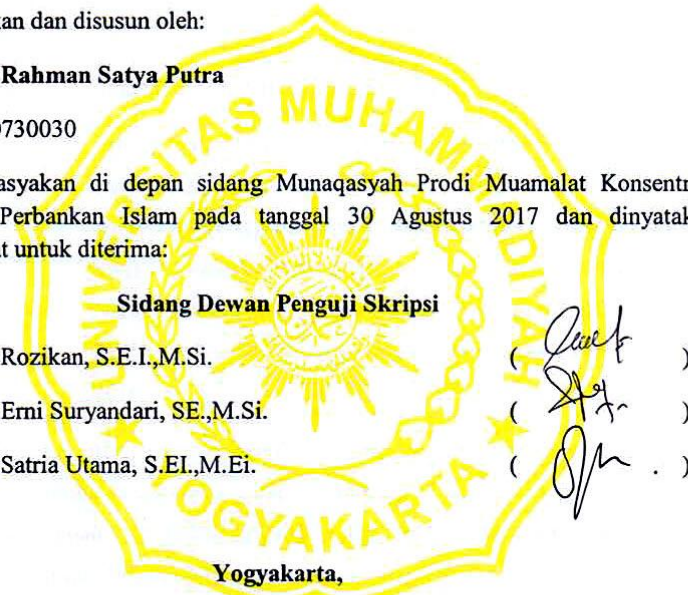 kan dan disusun oleh:
Rahman Satya Putra
0730030
asyakan di depan sidang Munaqasyah Prodi Muamalat Konsentr
Perbankan Islam pada tanggal 30 Agustus 2017 dan dinyatak
t untuk diterima:
Sidang Dewan Penguji Skripsi
Rozikan, S.E.I.,M.Si. ( )
Erni Suryandari, SE.,M.Si. ( )
Satria Utama, S.EI.,M.Ei. ( . )
Yogyakarta,
UNIVERSITAS MUHAMMADIYAH
YOGYAKARTA